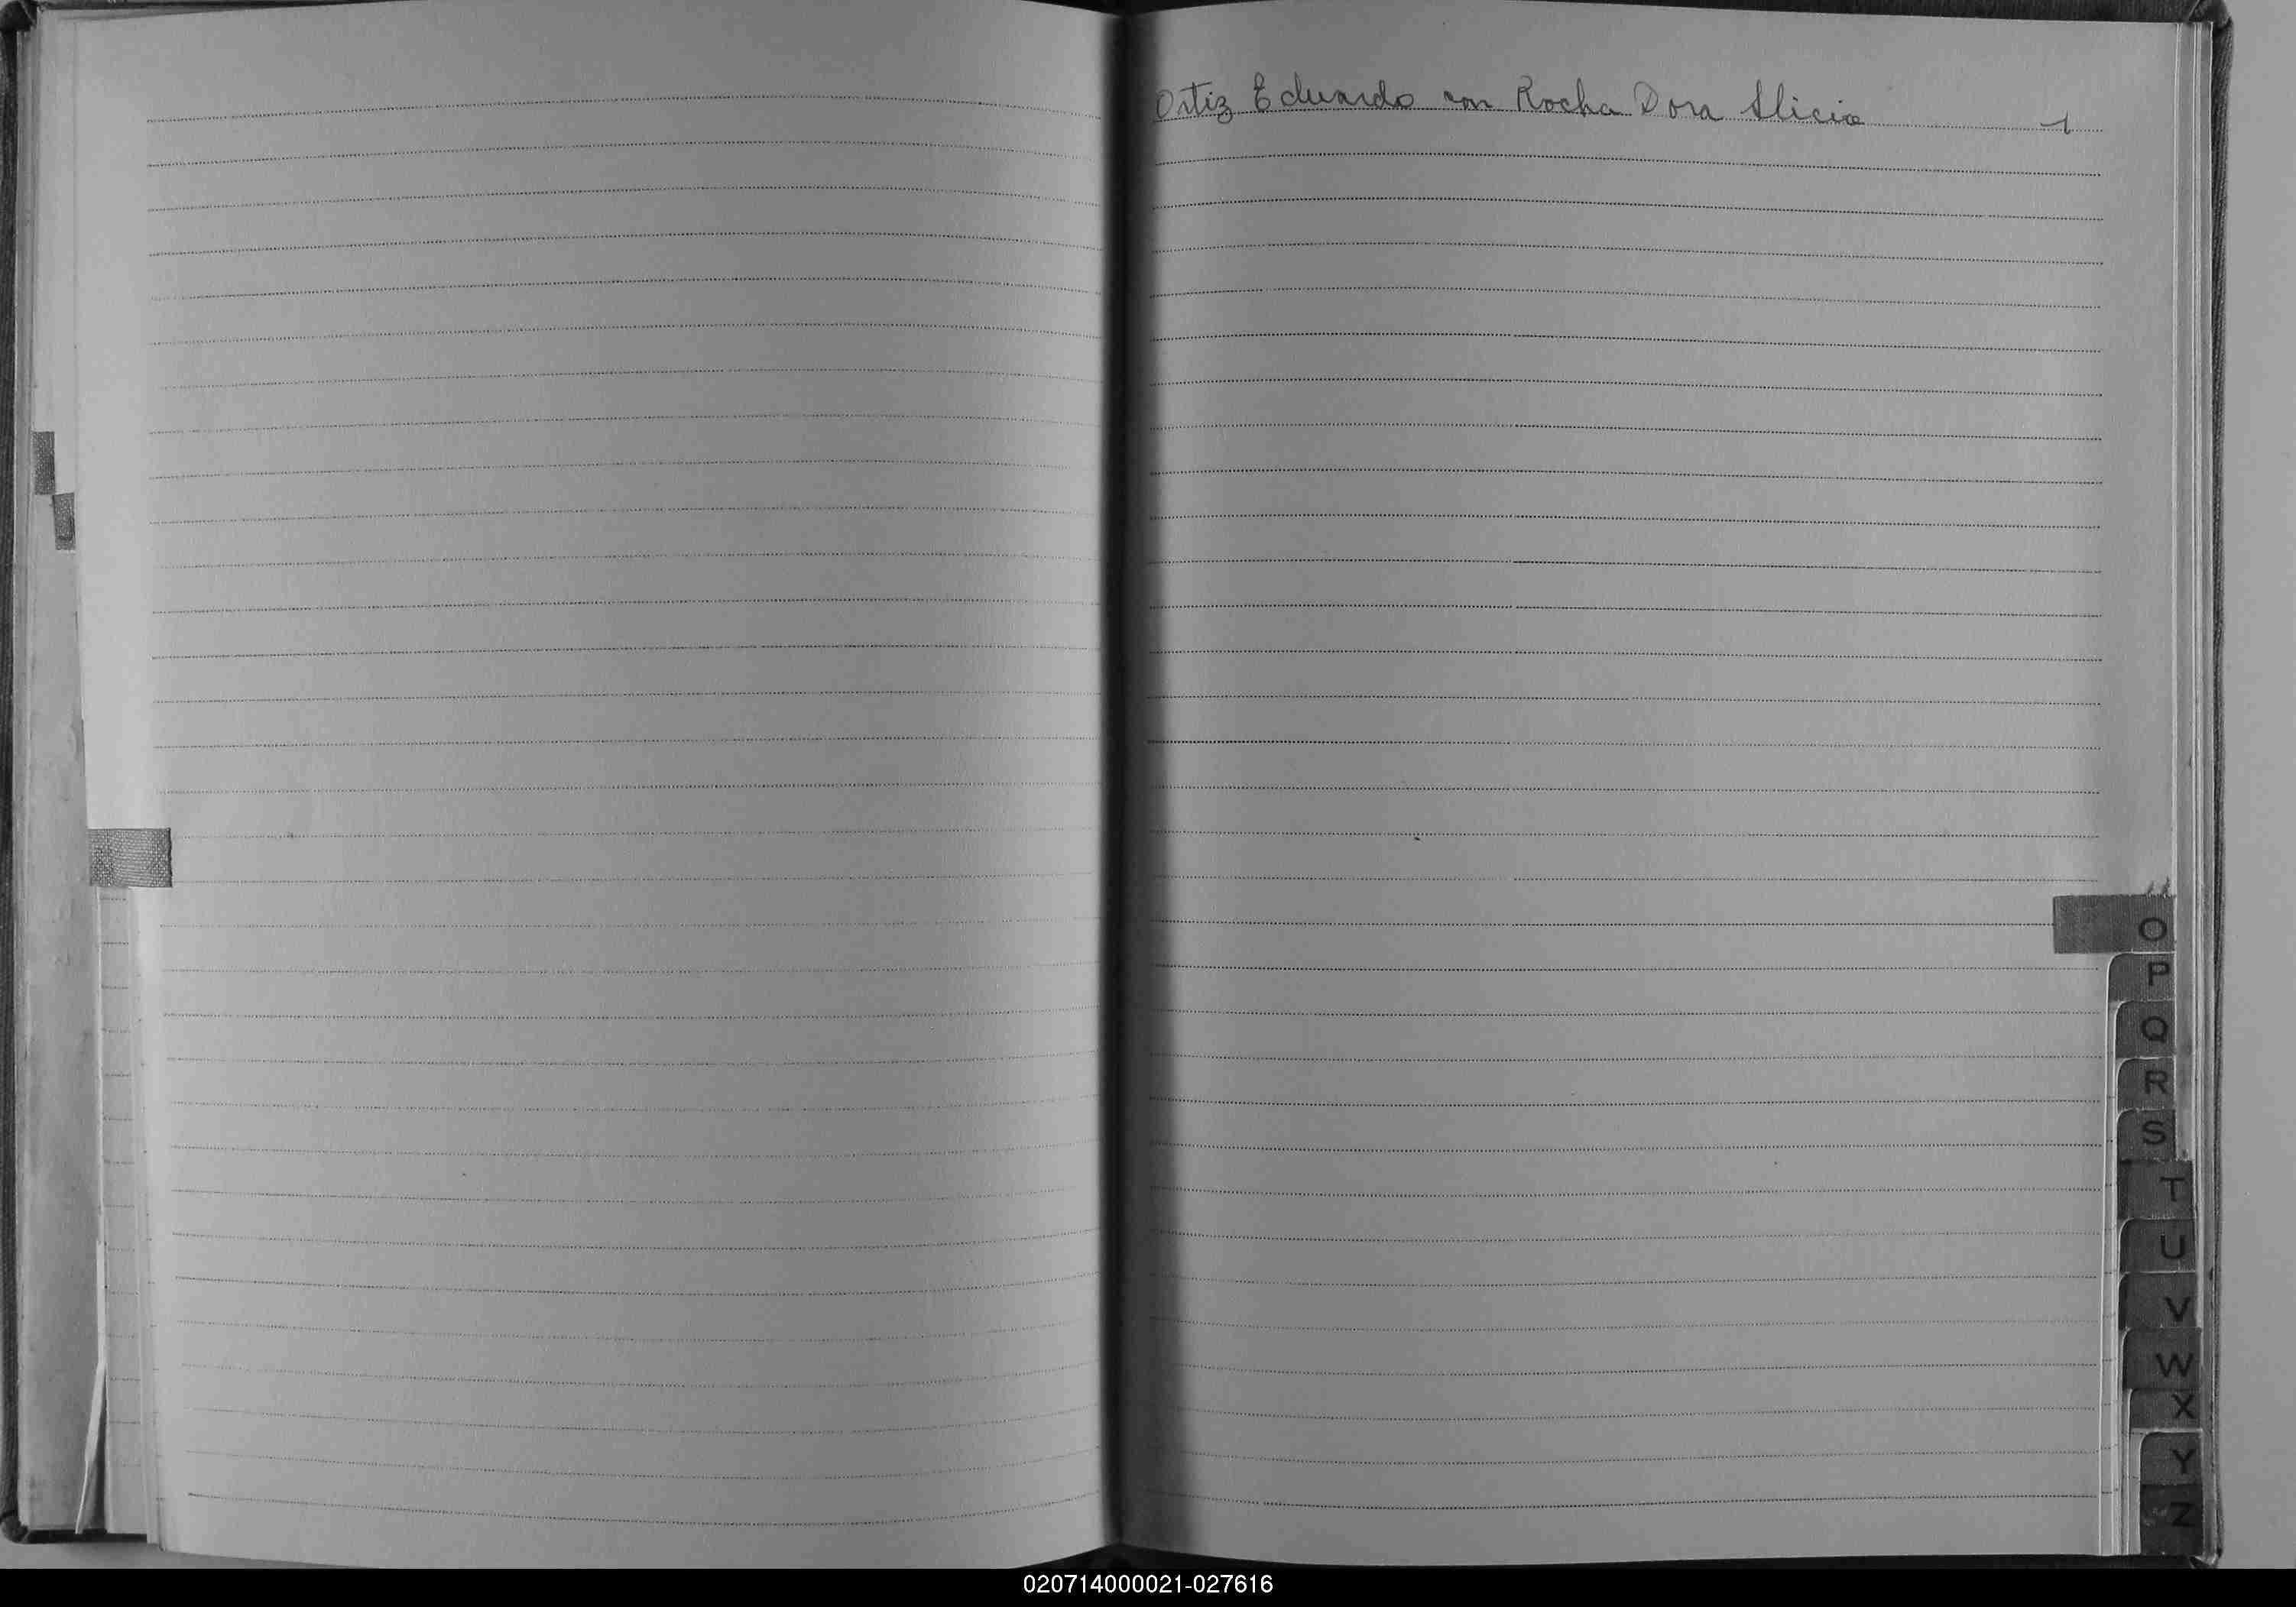 Ortiz Eduardo con Rocha Dora Alicia 1
O
P
Q
R
S
T
U
V
W
X
Y
Z
020714000021-027616